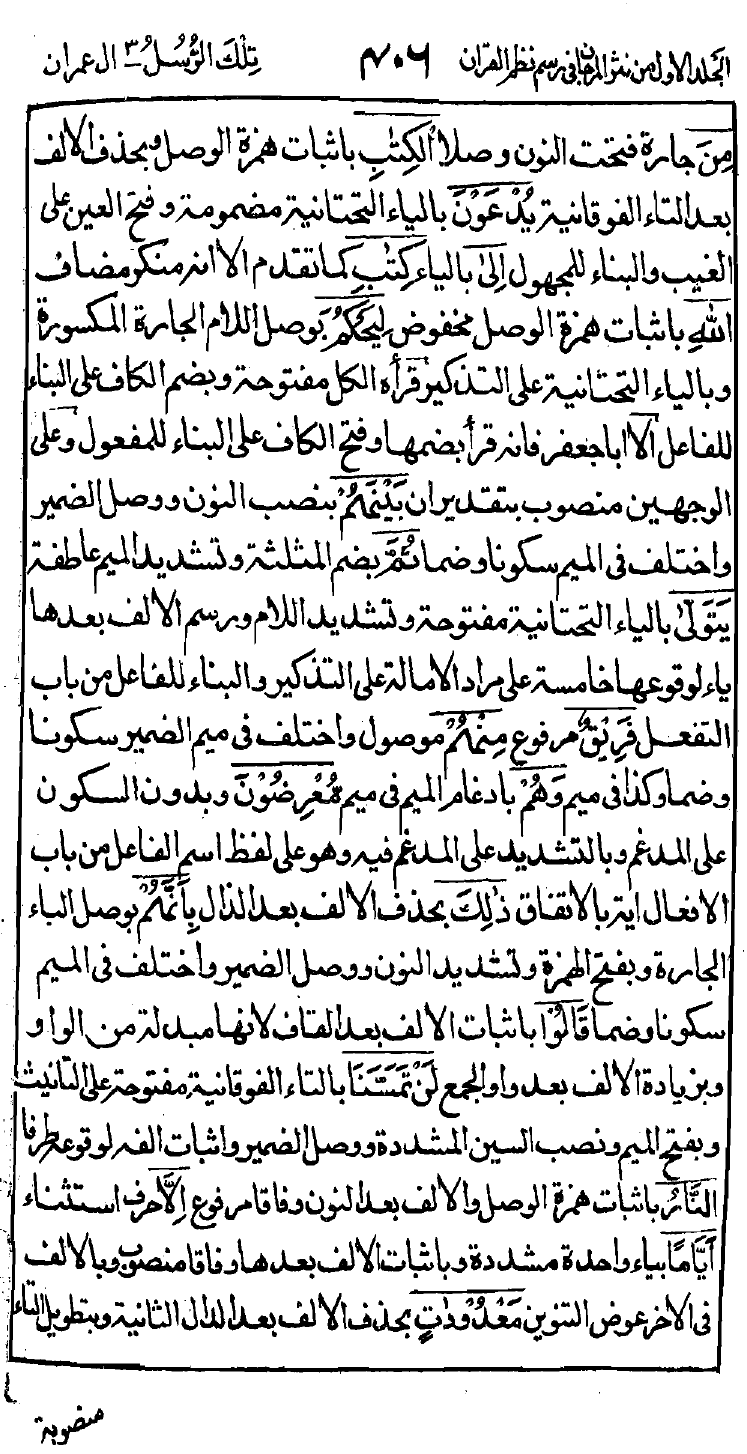 الجلد الاول من نثر المرجان فى رسم نظم القران ٤٠٦ تِلْكَ الرُّسُلُ ٣ ال عمران
مِنَ جارة فتحت النون وصلا الْكِتٰبِ باثبات همزة الوصل وبحذف الالف
بعد التاء الفوقانية يُدْعَوْنَ بالياء التحتانية مضمومة وفتح العين على
الغيب والبناء للمجهول اِلىٰ بالياء كِتٰبِ كما تقدم الا انه منكر مضاف
اللهِ باثبات همزة الوصل مخفوض لِيَحْكُمَ بوصل اللام الجارة المكسورة
وبالياء التحتانية على التذكير قرأه الكل مفتوحة وبضم الكاف على البناء
للفاعل الا اباجعفر فانه قرأ بضمها وفتح الكاف على البناء للمفعول وعلى
الوجهين منصوب بتقدير ان بَيْنَهُمْ بنصب النون ووصل الضمير
واختلف فى الميم سكونا وضما ثُمَّ بضم المثلثة وتشديد الميم عاطفة
يَتَوَلّٰى بالياء التحتانية مفتوحة وتشديد اللام ورسم الالف بعدها
ياء لوقوعها خامسة على مراد الامالة على التذكير والبناء للفاعل من باب
التفعل فَرِيْقٌ مرفوع مِنْهُمْ موصول واختلف فى ميم الضمير سكونا
وضما وكذا فى ميم وَهُمْ بادغام الميم فى ميم مُعْرِضُوْنَ وبدون السكون
على المدغم وبالتشديد على المدغم فيه وهو على لفظ اسم الفاعل من باب
الافعال اية بالاتفاق ذٰلِكَ بحذف الالف بعد الذال بِاَنَّهُمْ بوصل الباء
الجارة وبفتح الهمزة وتشديد النون ووصل الضمير واختلف فى الميم
سكونا وضما قَالُوْا باثبات الالف بعد القاف لانها مبدلة من الواو
وبزيادة الالف بعد واو الجمع لَنْ تَمَسَّنَا بالتاء الفوقانية مفتوحة على التانيث
وبفتح الميم ونصب السين المشددة ووصل الضمير واثبات الفه لوقوعه طرفا
النَّارُ باثبات همزة الوصل والالف بعد النون وفاقا مرفوع اِلَّا حرف استثناء
اَيَّامًا بياء واحدة مشددة وباثبات الالف بعدها وفاقا منصوب وبالالف
فى الاخر عوض التنوين مَعْدُوْدٰتٍ بحذف الالف بعد الدال الثانية وبتطويل التاء
منصوبة